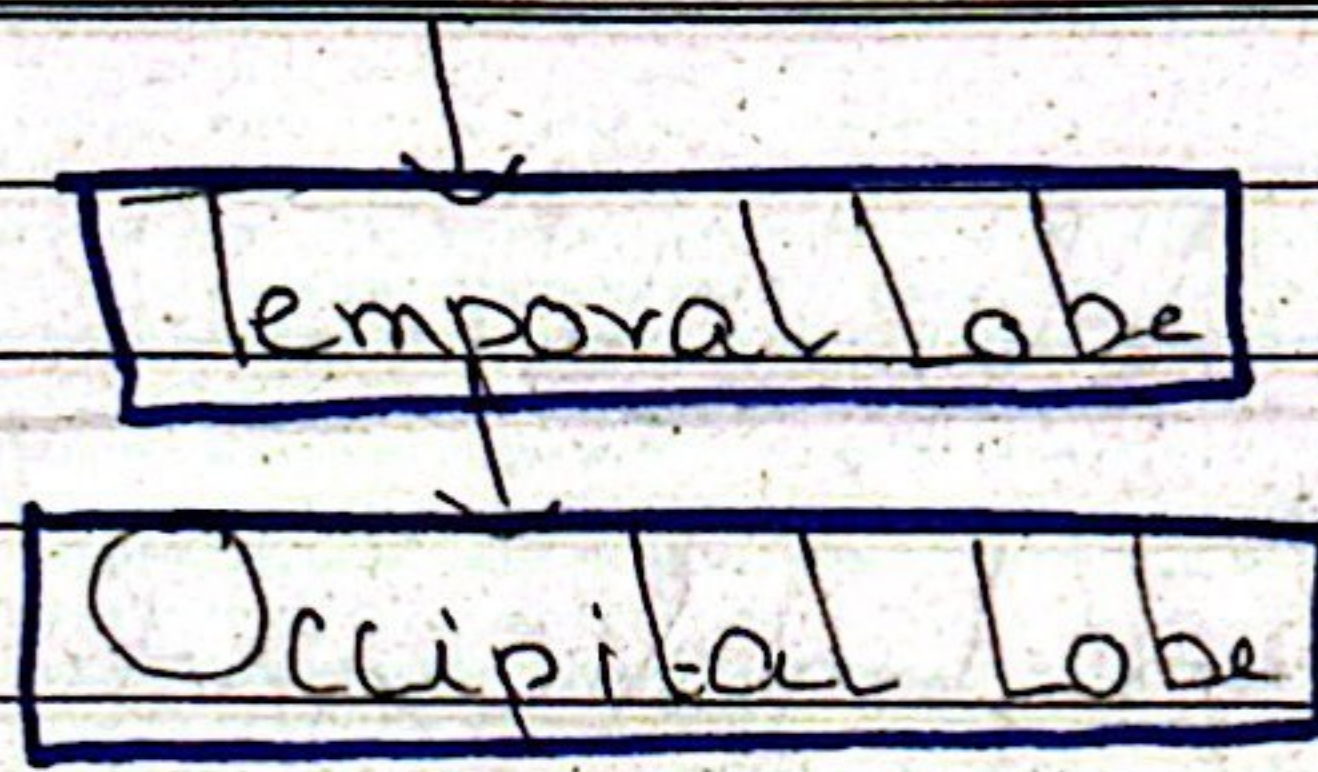 Temporal Lobe
Occipital Lobe